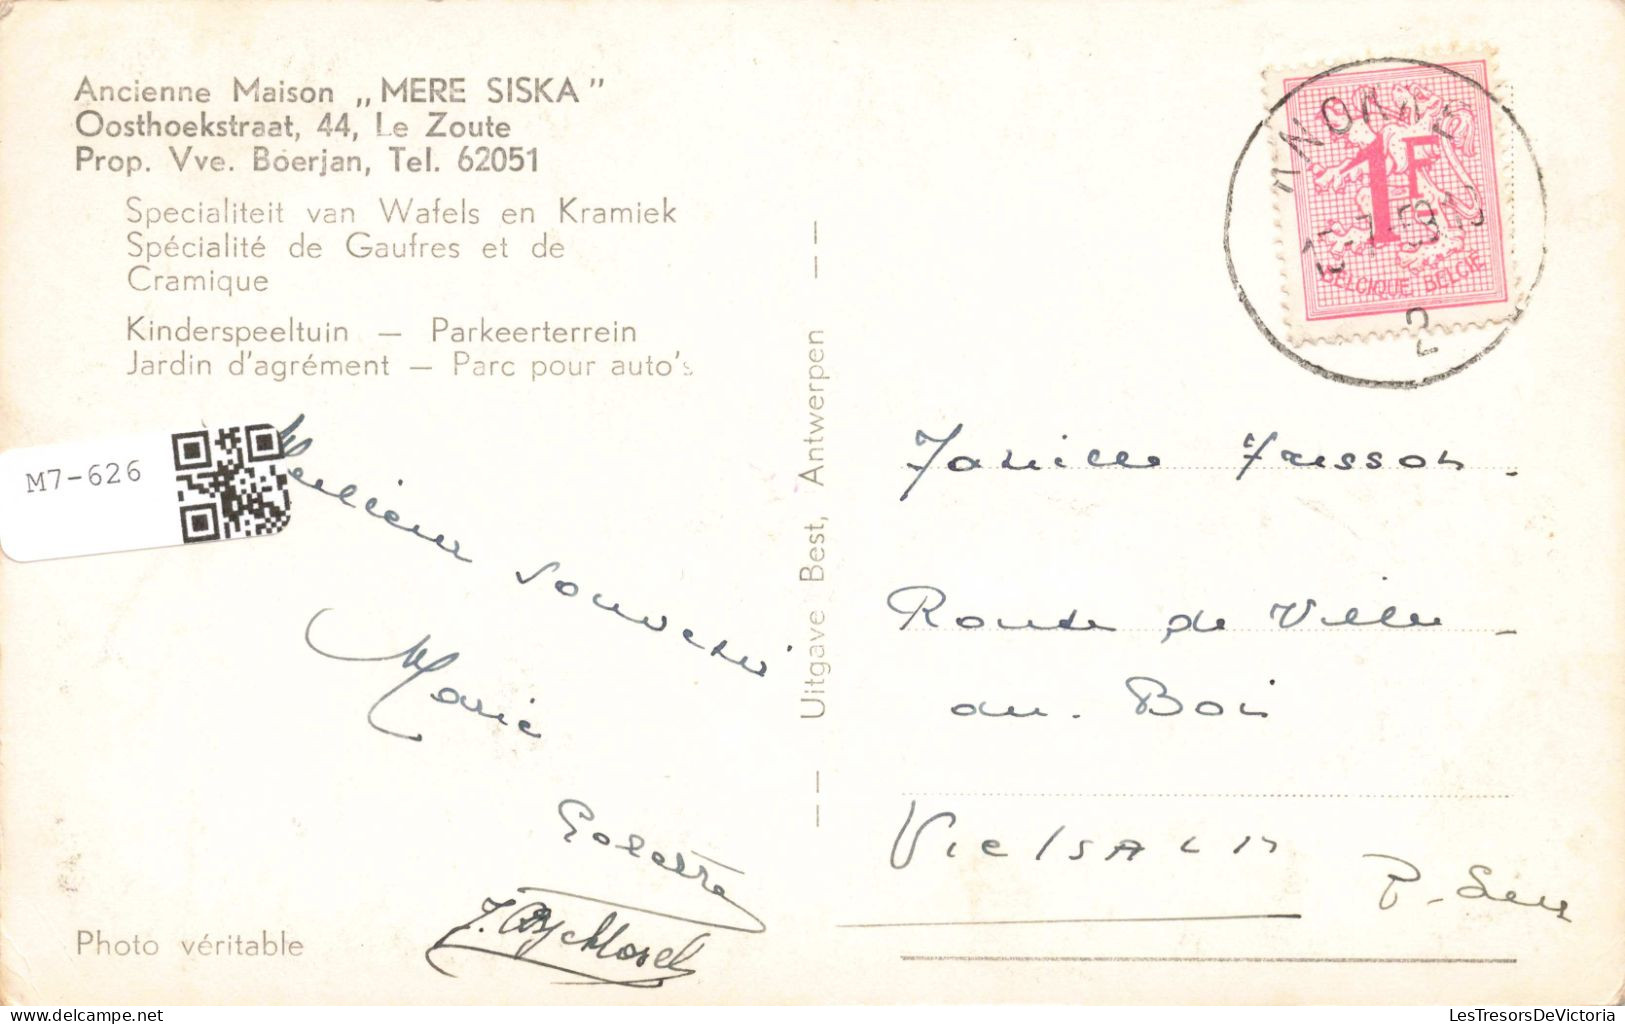 Ancienne Maison „MERE SISKA”
Oosthoekstraat, 44, Le Zoute
Prop. Vve. Boerjan, Tel. 62051
Specialiteit van Wafels en Kramiek
Spécialité de Gaufres et de
Cramique
Kinderspeeltuin — Parkeerterrein
Jardin d'agrément — Parc pour auto's
M7-626
souvenir
Marie
Photo véritable
Uitgave Best, Antwerpen
1F
BELGIQUE BELGIË
2
Famille
Route de Ville
du. Bois
VielSALM
LesTresorsDeVictoria.com